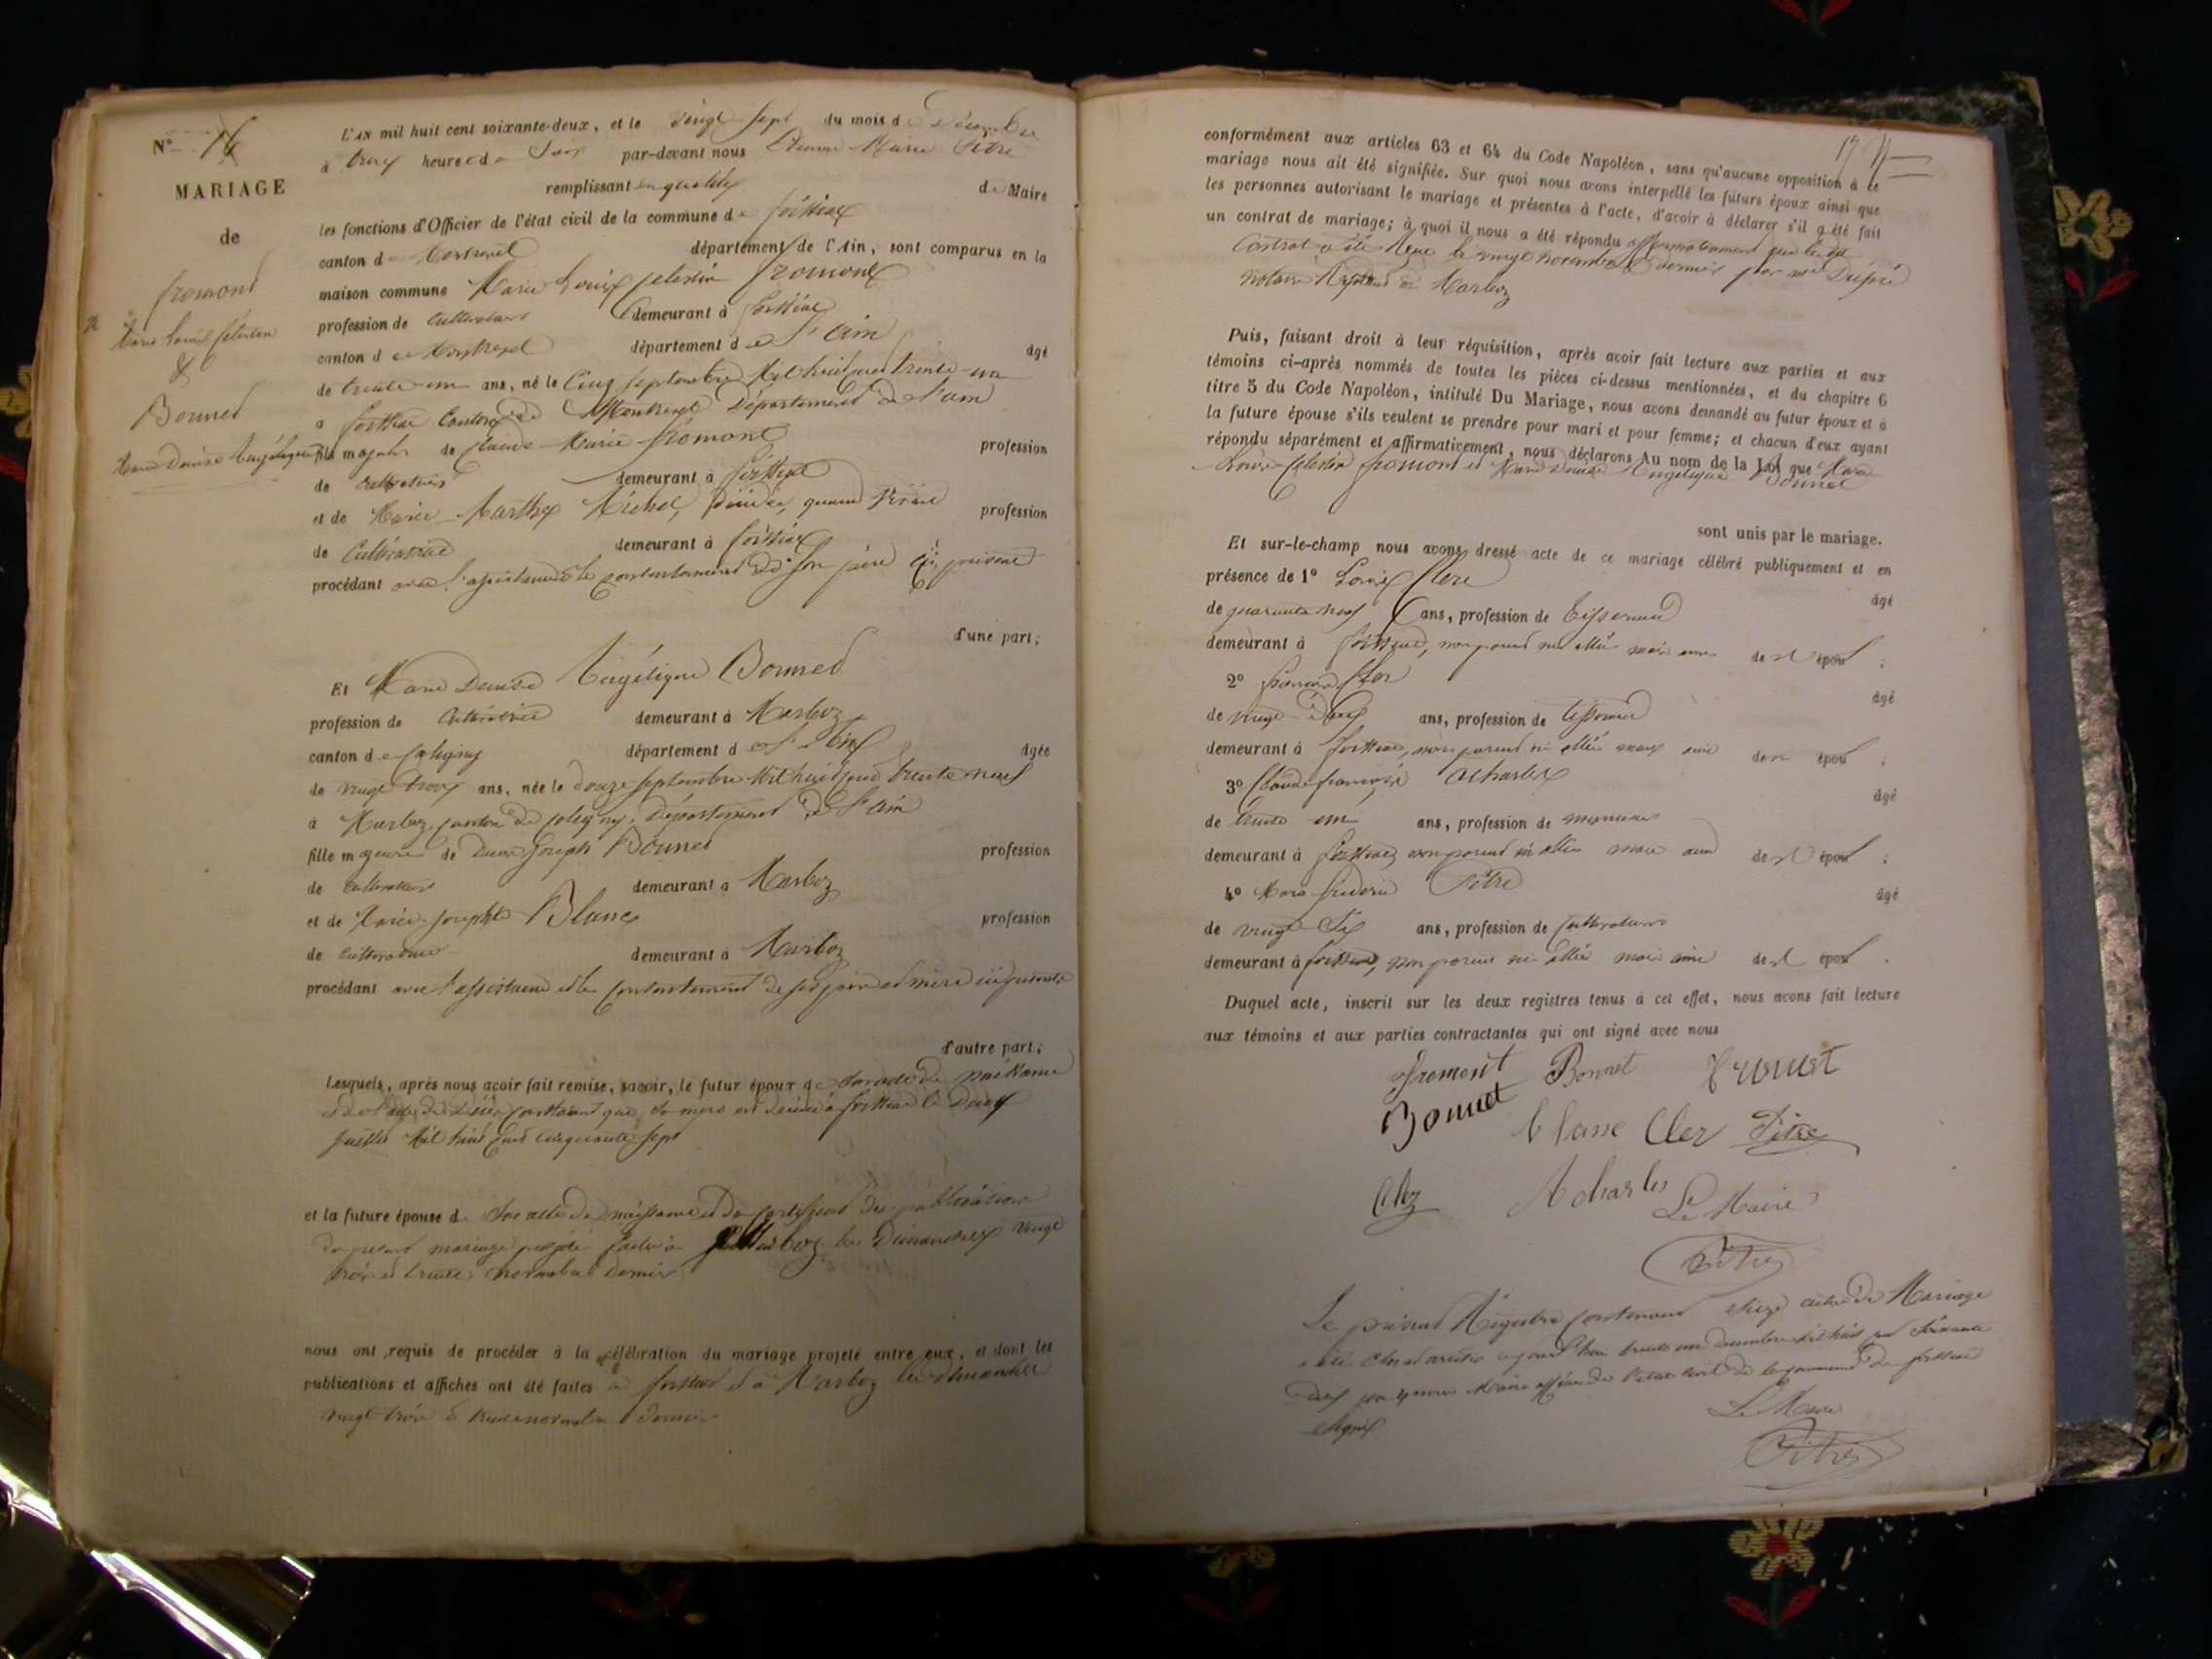 N° 16
MARIAGE
de
fromond
Marie Louis Celestin
&
Bonned
Marie Denise Angélique
L'AN mil huit cent soixante-deux, et le vingt sept du mois d Décembre
à trois heures d u Soir par-devant nous Etienne Marie Pitre
remplissant en qualité de Maire
les fonctions d'Officier de l'état civil de la commune de
canton d Montrevel département de l'Ain, sont comparus en la
maison commune Marie Louis Celestin fromont
profession de Cultivateur demeurant à
canton d e Montrevel département d e L'ain âgé
de trente-un ans, né le Cinq Septembre Mil huit cent trente-un
à Canton de Montrevel Département de L'ain
fils majeur de Claude Marie fromont profession
de Cultivateur demeurant à
et de Marie Marthe Michel, Décédée, quand vivait profession
de Cultivatrice demeurant à
procédant avec l'assistance & le consentement de Son père ici présent
d'une part;
Et Marie Denise Angélique Bonned
profession de Cultivatrice demeurant à Marboz
canton d e Coligny département d e L'Ain âgée
de vingt trois ans, née le douze Septembre Mil huit cent trente neuf
à Marboz canton de Coligny, Département de L'ain
fille majeure de Joseph Bonned profession
de Cultivateur demeurant à Marboz
et de Marie Josephte Blanc profession
de Cultivatrice demeurant à Marboz
procédant avec l'assistance et le Consentement de ses père et mère ici présents
d'autre part;
Lesquels, après nous avoir fait remise, savoir, le futur époux de Son acte de naissance
& de l'acte de Décès constatant que Sa mère est décédée à le Deux
Juillet Mil huit Cent Cinquante Sept
et la future épouse de Son acte de naissance & de certificat des publications
du présent mariage projeté faites à Marboz les Dimanches vingt
trois & trente novembre dernier
nous ont requis de procéder à la célébration du mariage projeté entre eux, et dont les
publications et affiches ont été faites à & à Marboz les dimanches
vingt trois & trente novembre dernier
17
conformément aux articles 63 et 64 du Code Napoléon, sans qu'aucune opposition à ce
mariage nous ait été signifiée. Sur quoi nous avons interpellé les futurs époux ainsi que
les personnes autorisant le mariage et présentes à l'acte, d'avoir à déclarer s'il a été fait
un contrat de mariage; à quoi il nous a été répondu affirmativement que le dit
Contrat a été Reçu le vingt novembre dernier par me Dupré
notaire à Marboz
Puis, faisant droit à leur réquisition, après avoir fait lecture aux parties et aux
témoins ci-après nommés de toutes les pièces ci-dessus mentionnées, et du chapitre 6
titre 5 du Code Napoléon, intitulé Du Mariage, nous avons demandé au futur époux et à
la future épouse s'ils veulent se prendre pour mari et pour femme; et chacun d'eux ayant
répondu séparément et affirmativement, nous déclarons Au nom de la Loi que Marie
Louis Celestin fromont et Marie Denise Angélique Bonned
sont unis par le mariage.
Et sur-le-champ nous avons dressé acte de ce mariage célébré publiquement et en
présence de 1° Louis Clere âgé
de quarante neuf ans, profession de Tisserand
demeurant à non parent ni allié mais ami de l'époux;
2° Cler âgé
de vingt Deux ans, profession de Tisserand
demeurant à non parent ni allié mais ami de l'époux;
3° Claude françois Acharles âgé
de trente un ans, profession de
demeurant à non parent ni allié mais ami de l'époux;
4° Marie Pitre âgé
de vingt Six ans, profession de Cultivateur
demeurant à non parent ni allié mais ami de l'époux.
Duquel acte, inscrit sur les deux registres tenus à cet effet, nous avons fait lecture
aux témoins et aux parties contractantes qui ont signé avec nous
fromont Bonnet
Bonnet blanc Cler Pitre
Cler Acharles Le Maire
Pitre
Le présent Régistre contenant Seize actes de Mariage
a été Clos & arrêté aujourd'hui trente un Décembre Mil huit cent Soixante
Deux par nous Maire officier de l'état Civil de la Commune de
Signé
Le Maire
Pitre